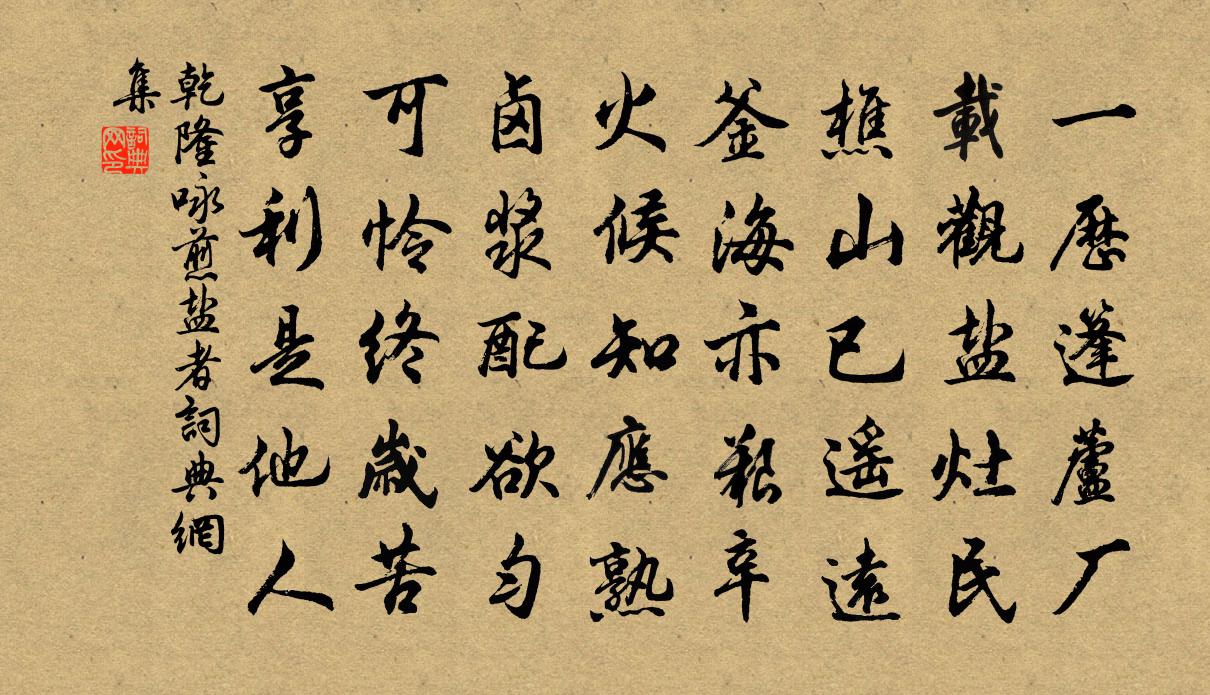 一历蓬蘆厂
載觀盐灶民
樵山已遥遠
釜海亦艱辛
火候知應熟
卤漿配欲匀
可怜终歲苦
享利是他人
乾隆咏煎盐者詞典網
集
詞典网印